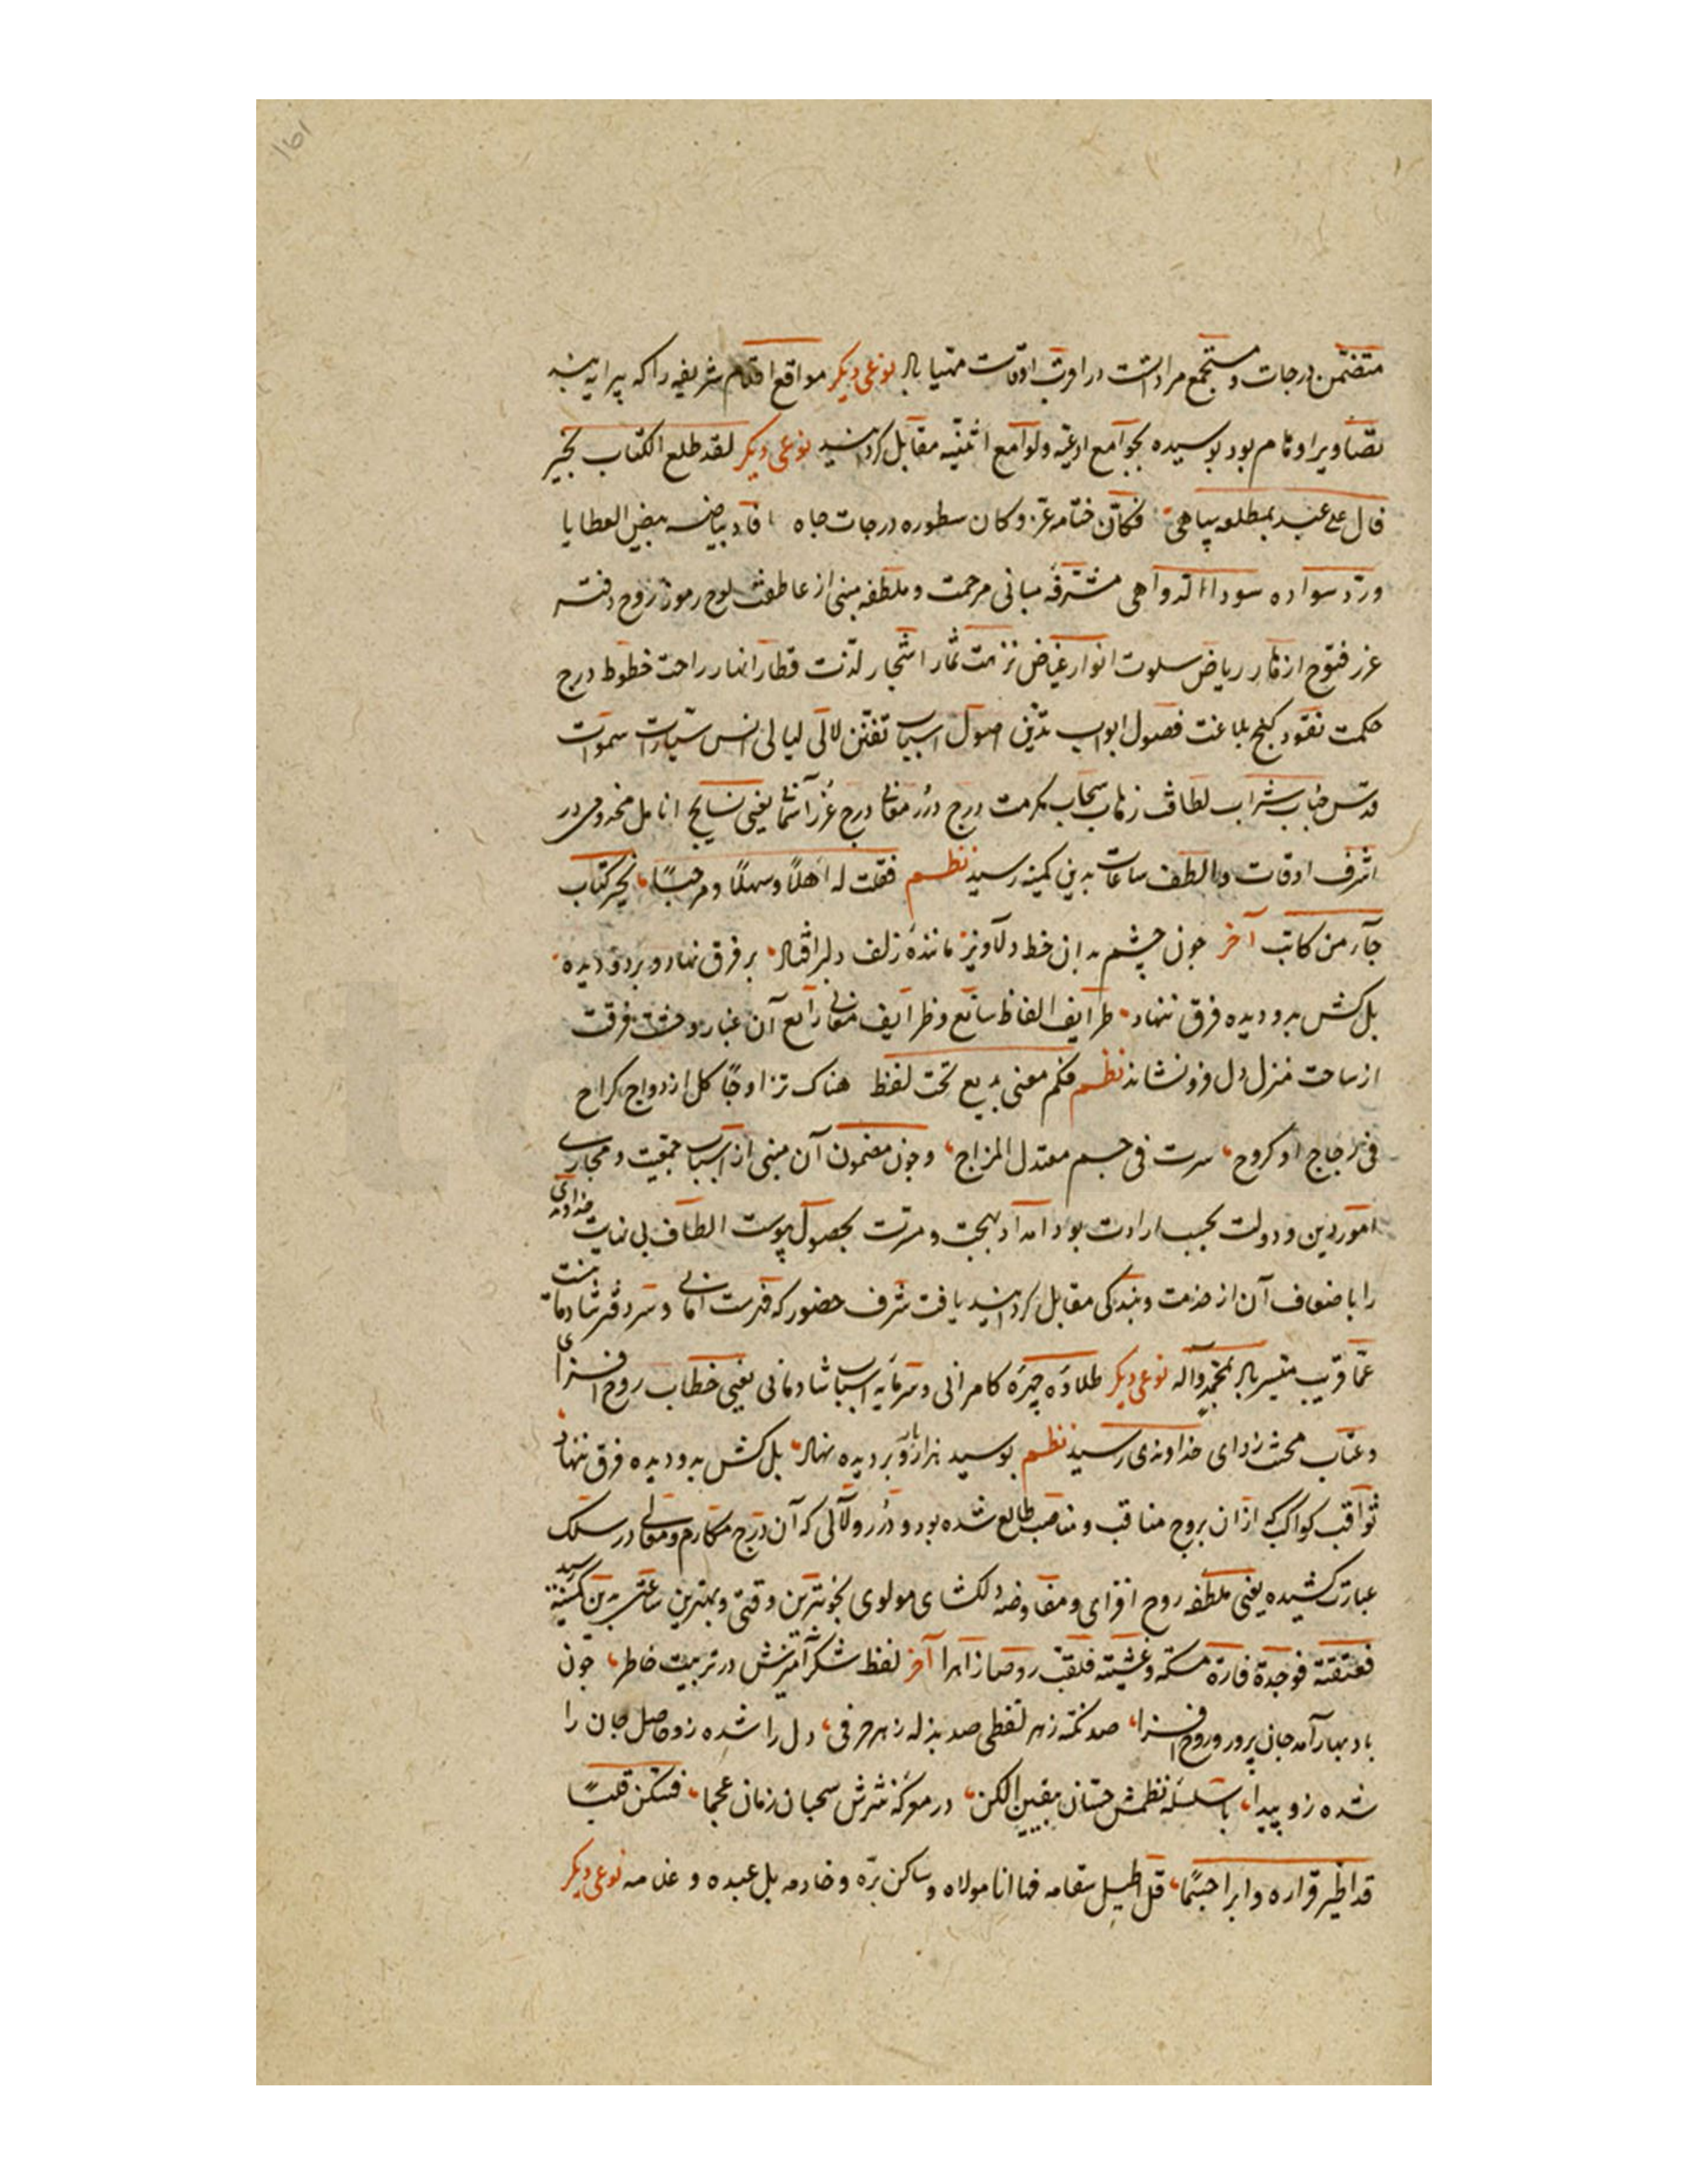 متضمن درجات و مستجمع مرادات در اقرب اوقات مهیا باد نوعی دیکر مواقع اقلام شریفه را که پیرایه بند
تصاویر اوهام بود بوسیده بجوامع ادعیه ولوامع اثنیه مقابل کردانید نوعی دیکر لقد طلع الکتاب بخیر
فال علی عبد بمطلعه یباهی فکان ختامه عز وکان سطوره درجات جاه افاد بیاضه بیض العطایا
ورد سواده سود الدواهی مشرفه مبانی مرحمت و ملطفه مبنی از عاطفت لوح رموز روح دفتر
غرر فتوح ازهار ریاض سلوت انوار غیاض نزهت ثمار اشجار لذت قطار انهار راحت خطوط درج
حکمت نقود کنج بلاغت فصول ابواب اصول اسباب تفنن لالی لیالی انس سیارات سموات
قدس شراب لطافت سحاب مکرمت درج درر معانی درج غرر یعنی نسایج انامل مخدومی در
اشرف اوقات والطف ساعات بدین کمینه رسید نظم فقلت له اهلا وسهلا ومرحبا بخیر کتاب
جاء من کاتب آخر چون چشم بدان خط دلاویز ماننده زلف دلبر افتاد بر فرق نهاد و بر دو دیده
بل کش بدو دیده فرق ننهاد طرایف الفاظ و ظرایف معانی رایع آن غبار وحشت فرقت
از ساحت منزل دل فرو نشاند نظم فکم معنی بدیع تحت لفظ هناک تزاوجا کل ازدواج کراح
فی زجاج او کروح سرت فی جسم معتدل المزاج و چون مضمون آن مبنی از اسباب جمعیت و مجاری
امور دین و دولت بحسب ارادت بود امداد بهجت و مسرت بحصول پیوست الطاف بی نهایت خداوندی
را باضعاف آن از خدمت و بندکی مقابل کردانید یافت شرف حضور که فهرست امانی و سر دفتر شادمانیست
عما قریب میسر باد بمحمد وآله نوعی دیکر طلاوه چهره کامرانی و سرمایه اسباب شادمانی یعنی خطاب روح افزای
و عتاب خداوندی رسید نظم بوسید هزار بار و بر دیده نهاد بل کش بدو دیده فرق ننهاد
ثواقب کواکب که ازان بروج مناقب و مناصب طالع شده بود و درر و لآلی که آن درج مکارم و معالی در سلک
عبارت کشیده یعنی ملطفه روح افزای و مفاوضه دلکشای مولوی بخوبترین وقتی و بهترین ساعتی بدین کمینه رسید
روضا زاهرا آخر لفظ شکر آمیزش در تربیت خاطر چون
باد بهار آمد جان پرور و روح افزا صد نکته ز هر لفظی صد بذله ز هر حرفی دل را شده زو حاصل جان را
شده زو پیدا با سلسله نظمش حسان الکن در معرکه نثرش سحبان زمان عجما فسکن قلبا
قد اطیر قراره وابرا جسما قد اطیل سقامه فها انا مولاه وساکن بره وخادمه بل عبده و غلامه نوعی دیکر